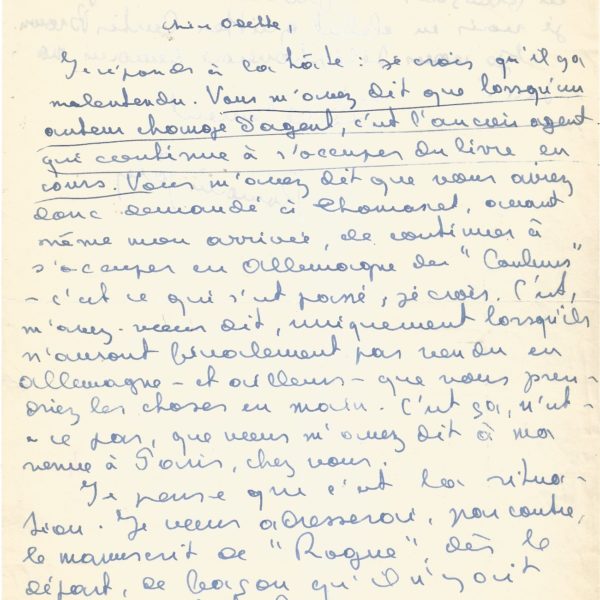 chère Odette,
Je réponds à la hâte : je crois qu'il y a
malentendu. Vous m'avez dit que lorsqu'un
auteur change d'agent, c'est l'ancien agent
qui continue à s'occuper du livre en
cours. Vous m'avez dit que vous aviez
donc demandé à Thomasset, avant
même mon arrivée, de continuer à
s'occuper en Allemagne des "Couleurs"
- c'est ce qui s'est passé, je crois. C'est,
m'avez-vous dit, uniquement lorsqu'ils
n'auront finalement pas vendu en
Allemagne - et ailleurs - que vous pren-
driez les choses en main. C'est ça, n'est-
- ce pas, que vous m'avez dit à ma
venue à Paris, chez vous.
Je pense que c'est la situa-
tion. Je vous adresserai, par contre,
le manuscrit de "Rogue", dès le
départ, de façon qu'il n'y ait